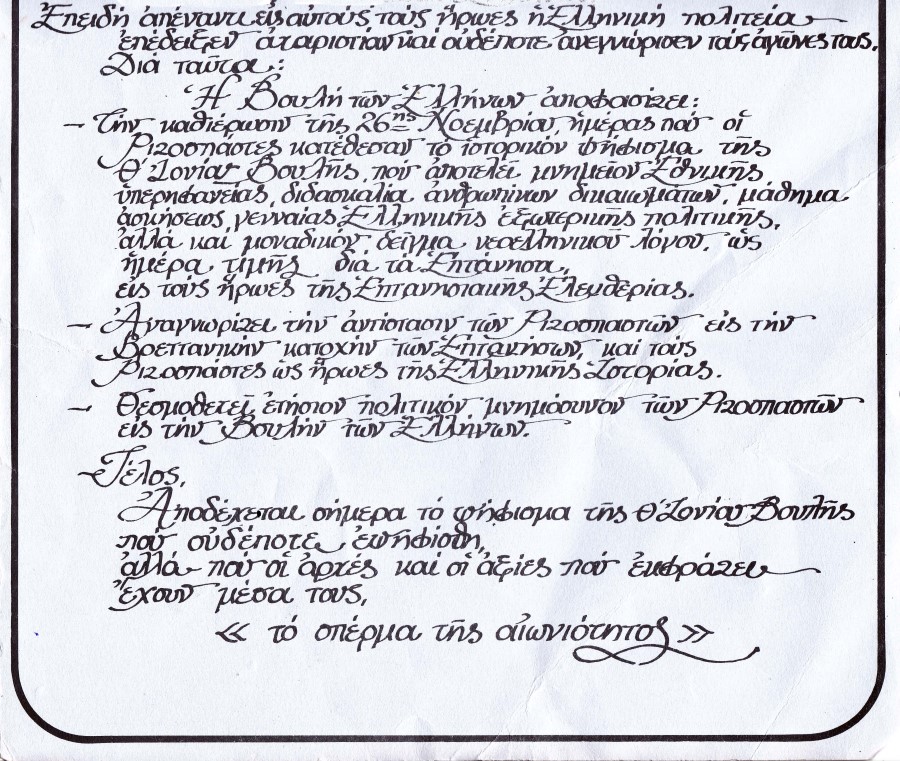 Ἐπειδή ἀπέναντι εἰς αὐτούς τούς ἥρωες ἡ Ἑλληνική πολιτεία
ἐπέδειξεν ἀχαριστίαν καί οὐδέποτε ἀνεγνώρισεν τούς ἀγῶνες τους.
Διά ταῦτα:
Ἡ Βουλή τῶν Ἑλλήνων ἀποφασίζει:
– Τήν καθιέρωσιν τῆς 26ης Νοεμβρίου, ἡμέρας πού οἱ
Ριζοσπάστες κατέθεσαν τό ἱστορικόν ψήφισμα τῆς
Θ' Ἰονίας Βουλῆς, πού ἀποτελεῖ μνημεῖον Ἐθνικῆς
ὑπερηφανείας, διδασκαλία ἀνθρωπίνων δικαιωμάτων, μάθημα
ἀσκήσεως γενναίας Ἑλληνικῆς ἐξωτερικῆς πολιτικῆς,
ἀλλά καί μοναδικόν δεῖγμα νεοελληνικοῦ λόγου, ὡς
ἡμέρα τιμῆς διά τά Ἑπτάνησα,
εἰς τούς ἥρωες τῆς Ἑπτανησιακῆς Ἐλευθερίας.
– Ἀναγνωρίζει τήν ἀντίστασιν τῶν Ριζοσπαστῶν εἰς τήν
Βρεττανικήν κατοχήν τῶν Ἑπτανήσων, καί τούς
Ριζοσπάστες ὡς ἥρωες τῆς Ἑλληνικῆς Ἱστορίας.
– Θεσμοθετεῖ ἐτήσιον πολιτικόν μνημόσυνον τῶν Ριζοσπαστῶν
εἰς τήν Βουλήν τῶν Ἑλλήνων.
– Τέλος,
Ἀποδέχεται σήμερα τό ψήφισμα τῆς Θ' Ἰονίας Βουλῆς
πού οὐδέποτε ἐψηφίσθη,
ἀλλά πού οἱ ἀρχές καί οἱ ἀξίες πού ἐκφράζει
ἔχουν μέσα τους,
« τό σπέρμα τῆς αἰωνιότητος »